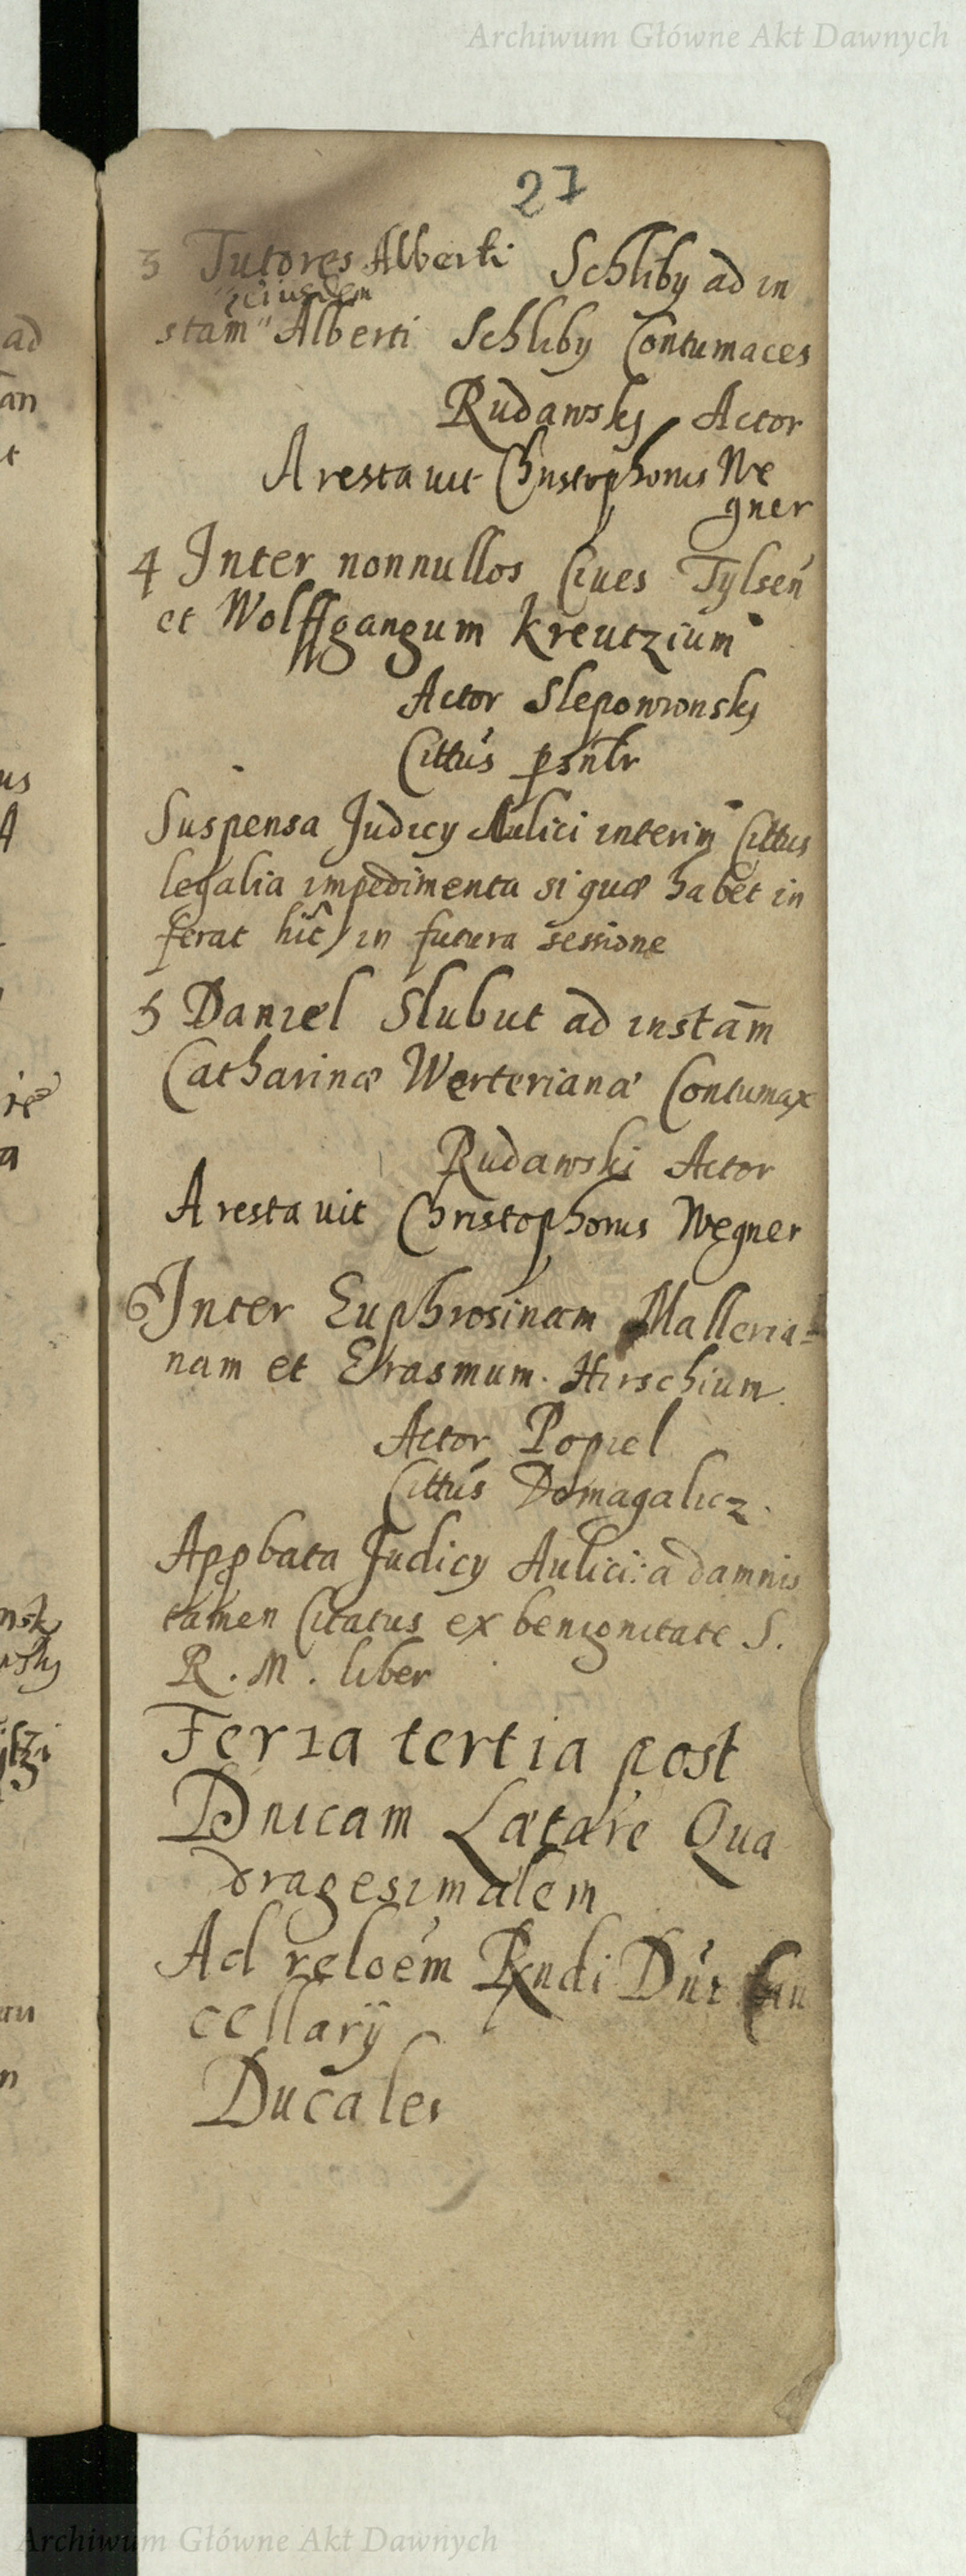 Archiwum Główne Akt Dawnych
27
3 Tutores Alberti Schliby ad in
eiusdem
stam" Alberti Schliby Contumaces
Rudawskj Actor
Arestauit Christophorus We
gner
4 Inter nonnullos Ciues Tylsen
et Wolffgangum Kreutzium
Actor Slepowronskj
Cittus psntr
Suspensa Judicy Aulici interim Cittus
legalia impedimenta si quæ habet in
ferat hic in futura sessione
5 Daniel Slubut ad instam
Catharinæ Werterianæ Contumax
Rudawski Actor
Arestauit Christophorus Wegner
6 Inter Euphrosinam Malleria=
nam et Erasmum Hirschium
Actor Popiel
Cittus Domagalicz.
Appbata Judicy Aulici: a damnis
tamen Citatus ex benignitate S.
R. M. liber
Feria tertia post
Dnicam Lætare Qua
dragesimalem
Ad reloem Rndi Dni Can
cellarÿ
Ducales
ad
an
t
us
4
re
a
nsk
wskj
itzi
au
n
Archiwum Główne Akt Dawnych